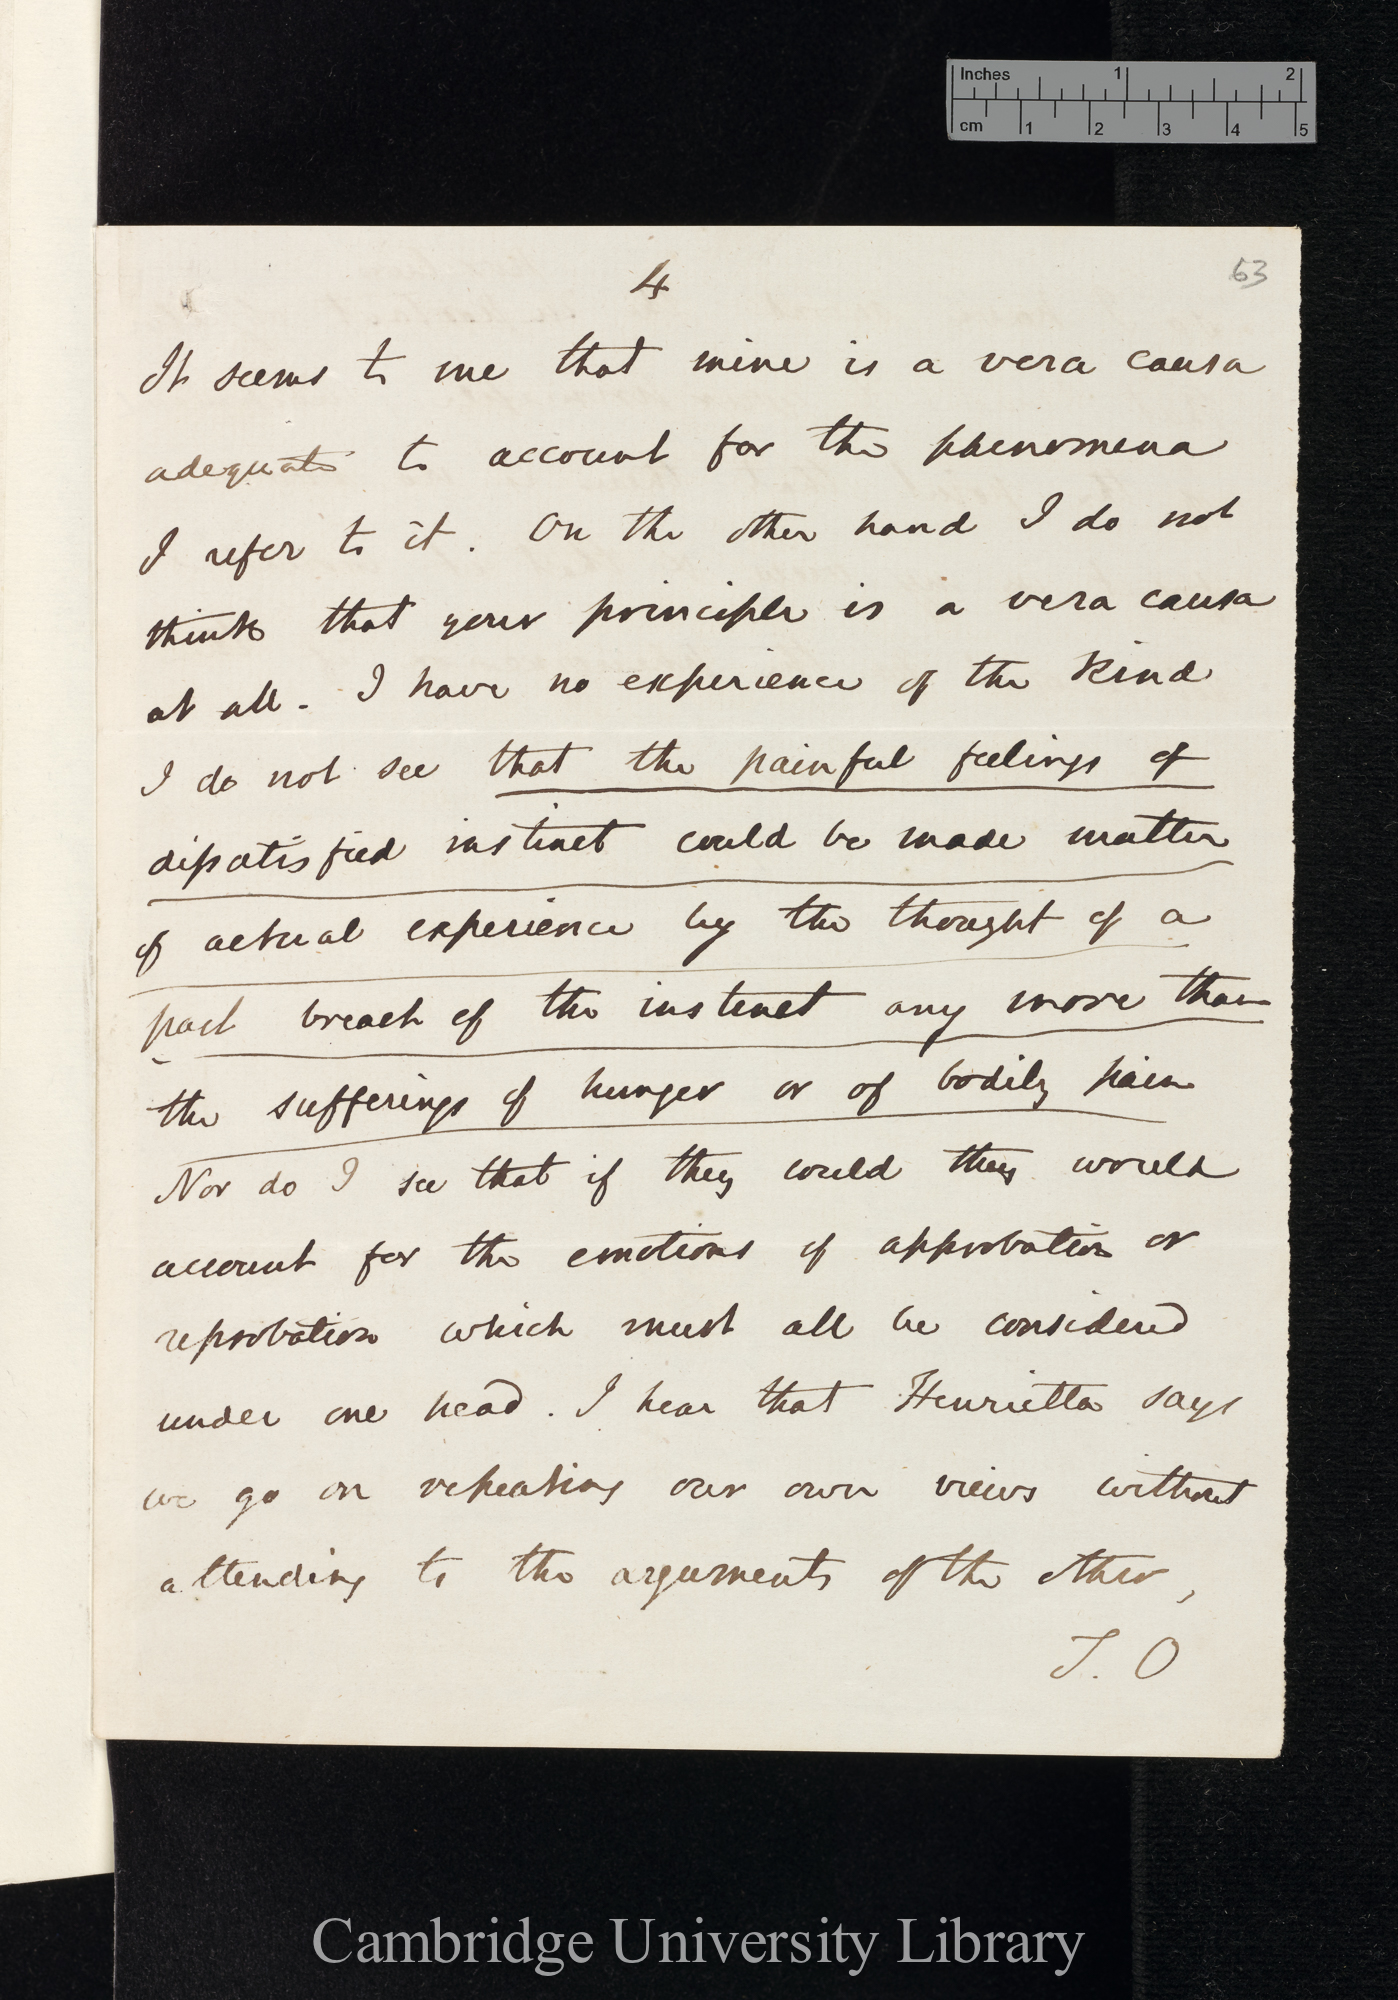 Inches 1 2
cm 1 2 3 4 5
63
4
It seems to me that mine is a vera causa
adequate to account for the phenomena
I refer to it. On the other hand I do not
think that your principle is a vera causa
at all. I have no experience of the kind
I do not see that the painful feelings of
dissatisfied instinct could be made matter
of actual experience by the thought of a
past breach of the instinct any more than
the sufferings of hunger or of bodily pain
Nor do I see that if they could they would
account for the emotions of approbation or
reprobation which must all be considered
under one head. I hear that Henrietta says
we go on repeating our own views without
attending to the arguments of the other,
J. O
Cambridge University Library